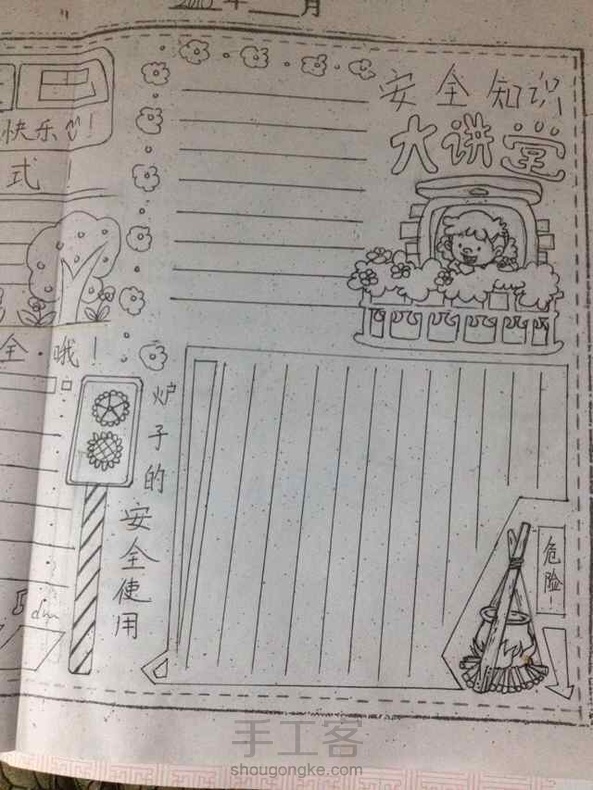 年 月
安全知识
大讲堂
快乐 !
式
全·哦!
炉子的
安全使用
危险
dm
手工客
shougongke.com